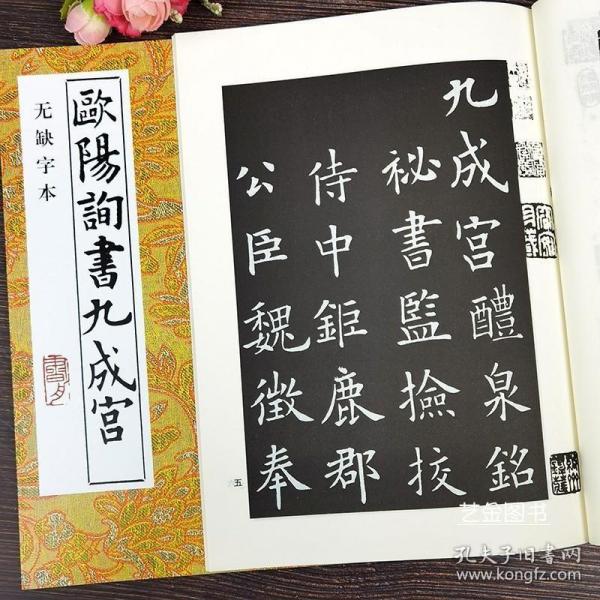 歐陽詢書九成宮
无缺字本
九成宮醴泉銘
祕書監撿挍
侍中鉅鹿郡
公臣魏徵奉
五
艺金图书
孔夫子旧书网
www.kongfz.com